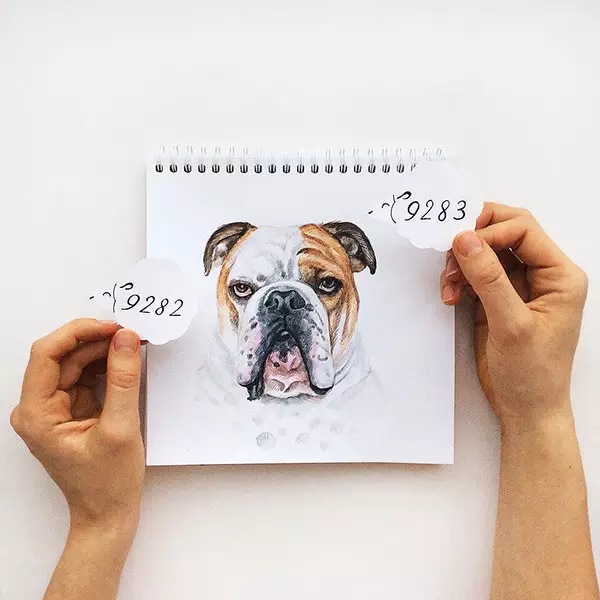 9282
9283